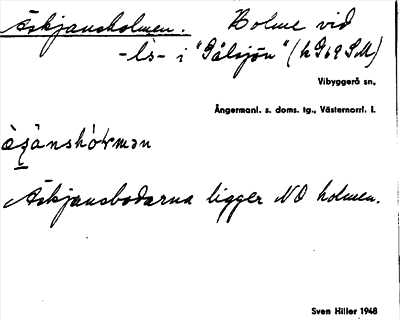 Äskjansholmen. Holme vid
-ls- i "Pålsjön" (h T 19 SM)
Vibyggerå sn.
Ångermanl. s. doms. tg., Västernorrl. l.
Äskjansbodarna ligger NO holmen.
Sven Hiller 1948